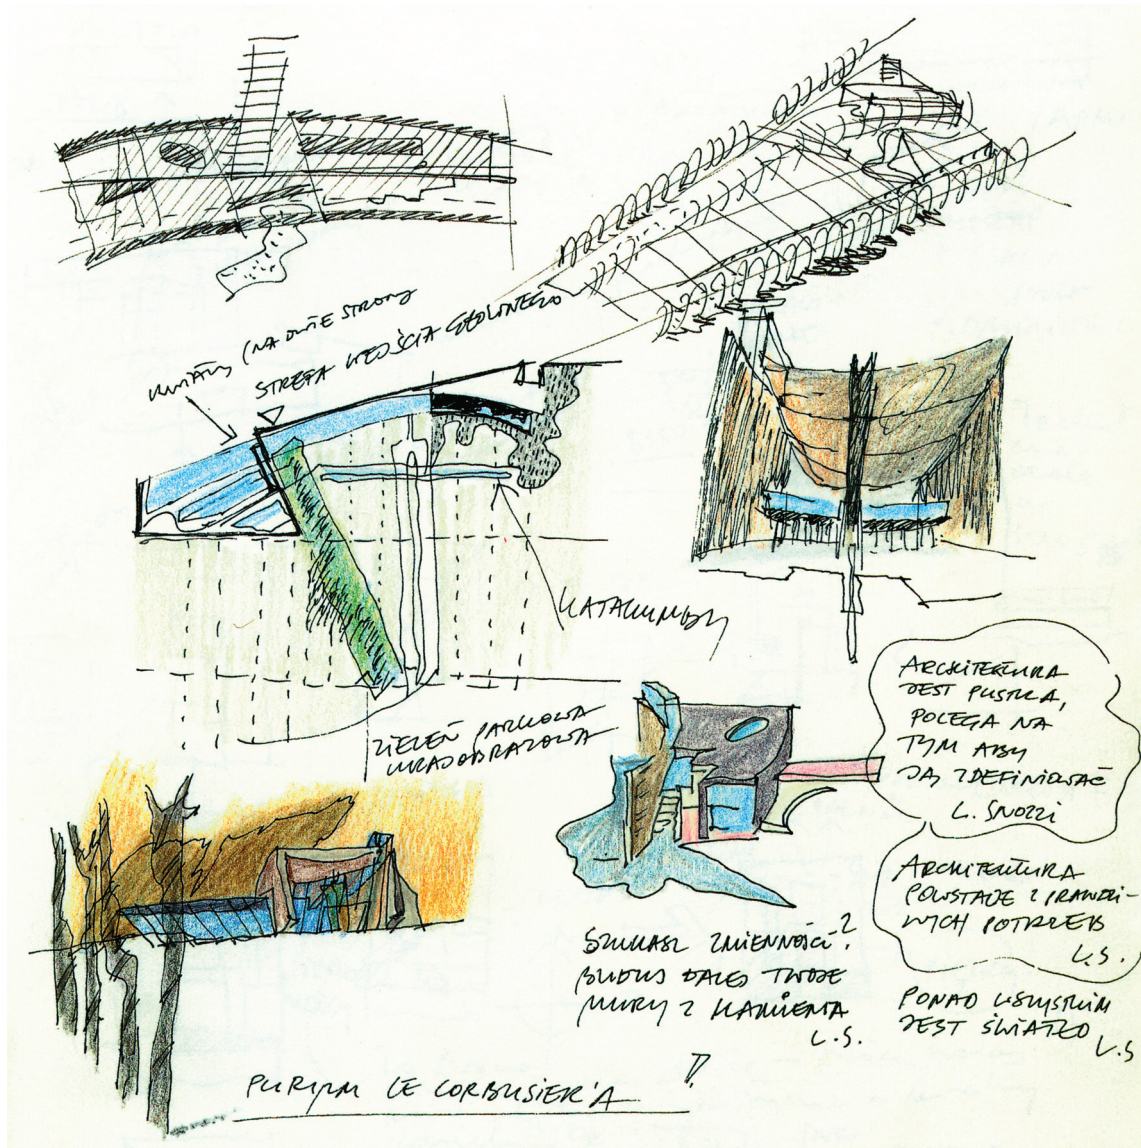 (NA DWIE STRONY
STREFA WEJŚCIA GŁÓWNEGO
KATAKUMBY
ZIELEŃ PARKOWA
KRAJOBRAZOWA
ARCHITEKTURA
JEST PUSTKĄ,
POLEGA NA
TYM ABY
JĄ ZDEFINIOWAĆ
L. SNOZZI
ARCHITEKTURA
POWSTAJE Z PRAWDZI-
WYCH POTRZEB
L.S.
SZUKASZ ZMIENNOŚCI?
BUDUJ DALEJ TWOJE
MURY Z KAMIENIA
L.S.
PONAD WSZYSTKIM
JEST ŚWIATŁO
L.S
PURYZM LE CORBUSIER'A